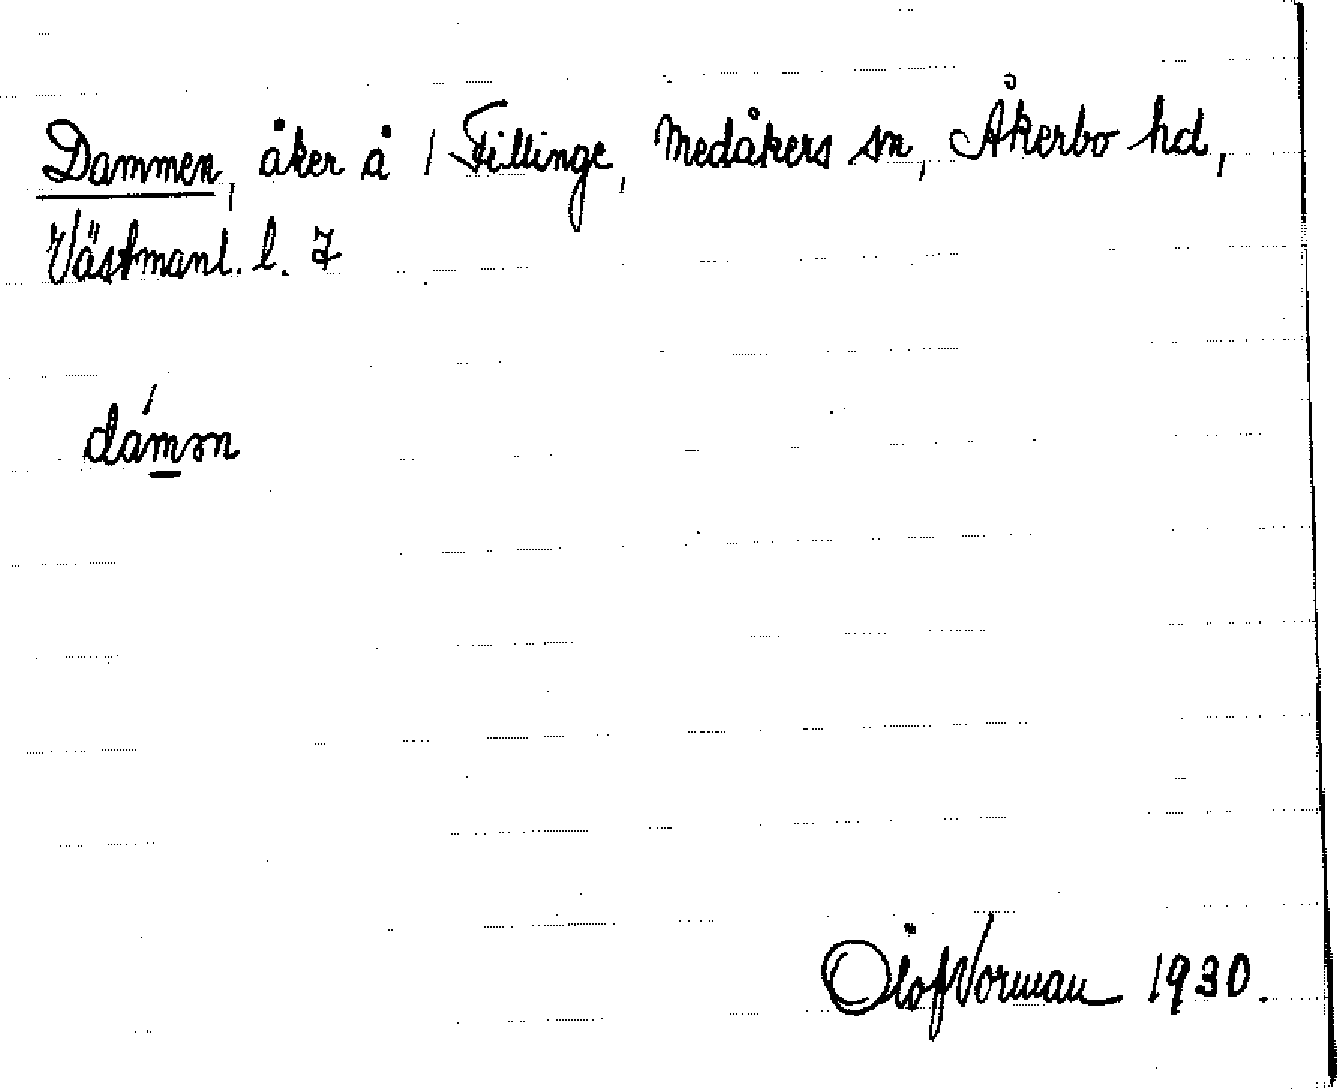 Dammen, åker å 1 Fillinge, Medåkers sn, Åkerbo hd,
Västmanl. l. 7
dámṃn
Olof Norman 1930.